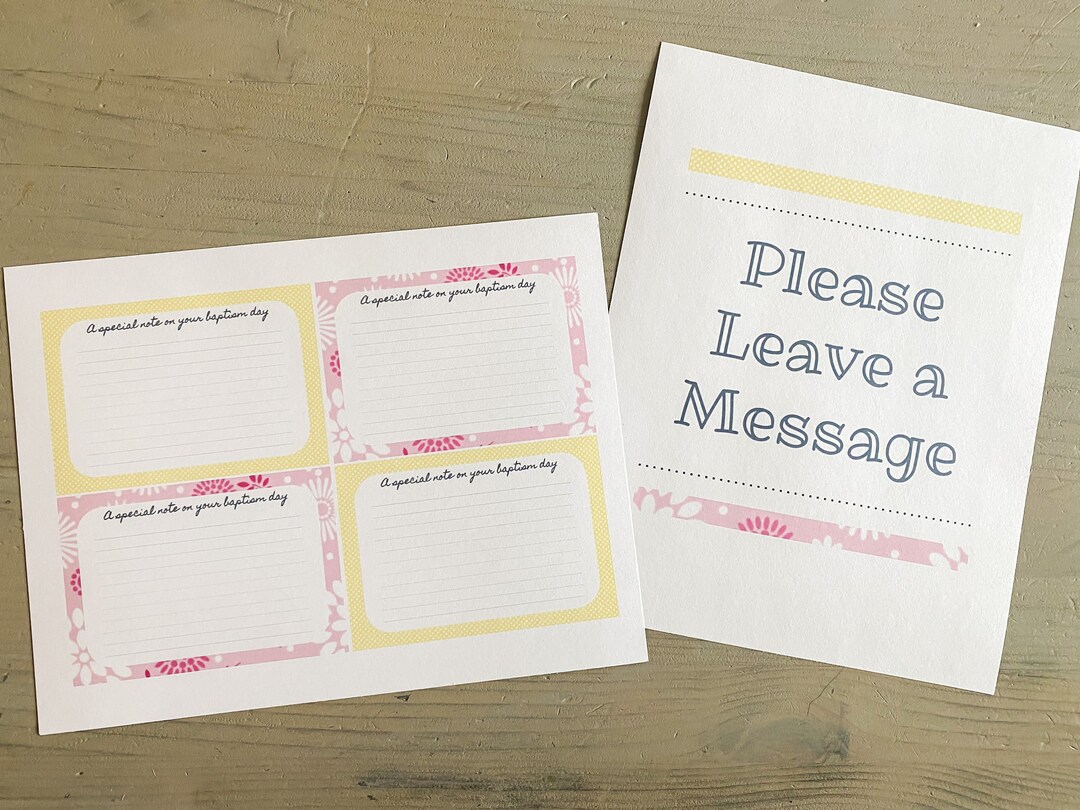 A special note on your baptism day
A special note on your baptism day
A special note on your baptism day
A special note on your baptism day
Please
Leave a
Message